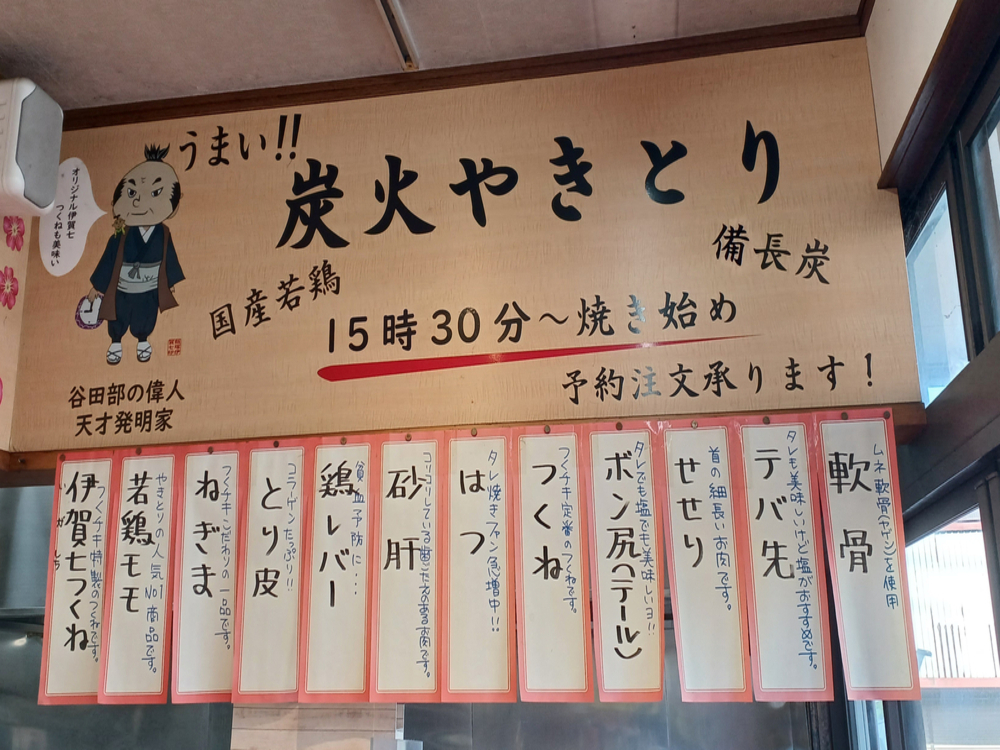 うまい!!
炭火やきとり
備長炭
国産若鶏
15時30分～焼き始め
予約注文承ります！
オリジナル伊賀七
つくねも美味い
谷田部の偉人
天才発明家
ムネ軟骨(ヤゲン)を使用
軟骨
タレも美味しいけど塩がおすすめです。
テバ先
首の細長いお肉です。
せせり
タレでも塩でも美味しいヨ!!
ボン尻(テール)
つくチキ定番のつくねです。
つくね
タレ焼きファン急増中!!
はつ
コリコリしている歯ごたえのあるお肉です。
砂肝
貧血予防に・・・
鶏レバー
コラーゲンたっぷり!!
とり皮
つくチキこだわりの一品です。
ねぎま
やきとりの人気No1商品です。
若鶏モモ
つくチキ特製のつくねです。
伊賀七つくね
いがしち